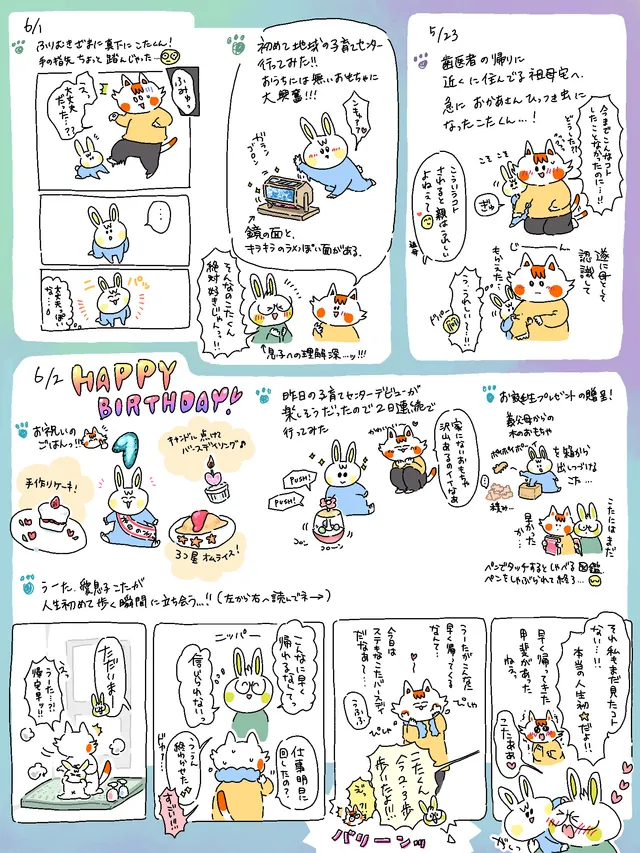 6/1
ふりむきざまに真下にこたくん!
手の指先ちょっと踏んじゃった…
ふみゃっ
スッ
大丈夫
だった…??
…
ニパッ
大丈夫っぽい
な…
初めて地域の子育てセンター
行ってみた!!
おうちには無いおもちゃに
大興奮!!!
ンキャ??
ガラン
ゴロン
鏡の面と、
キラキラのラメっぽい面がある。
そんなのこたくん
絶対好きじゃん…!!
↑息子への理解深…ッ!!!
5/23
歯医者の帰りに
近くに住んでる祖母宅へ。
急におかあさんひっつき虫に
なったこたくん…!
今までこんなコト
したことなかったのに…!!
どうした!?
こういうコト
されると親はうれしい
よねぇ
祖母
ぎゅ
じーん…
遂に母として
認識して
もらえた…?
うっうれしい〜!!!
6/2
HAPPY
BIRTHDAY!
お祝いの
ごはんっ!!
手作りケーキ!
キャンドルに点けて
バースデイソング♪
3つ星オムライス!
昨日の子育てセンターデビューが
楽しそうだったので2日連続で
行ってみた
PUSH!
PUSH!
コロン
コローン
かわいい
家にないおもちゃ
沢山あるのイイなぁ
お誕生日プレゼントの贈呈!
義父母からの
木のおもちゃ
ポイポイポーイ
を箱から
出しつづける
こた…
こたにはまだ
早かった
か…
ペンでタッチするとしゃべる図鑑
ペンをしゃぶられて終る…
うーた、愛息子こたが
人生初めて歩く瞬間に立ち会う…!!(左から右へ読んでネ→)
ただいまー
うーた…!?
帰宅早ッ!!
ニッパー
こんなに早く
帰れるなんて
信じられないっ
仕事明日に
回したの?
ううん
終わらせた
すごい!!!
うーたがこんな
早く帰ってくる
なんて…
今日は
ステキなこたバースディ
だなぁ〜
うふふ
ぴぃや
ぴぃや
こたくん
今2・3歩
歩いたよ!
え?!
パリーンッ
それ私もまだ見たコト
ない…!!
本当の人生初☆だよ!!
早く帰ってきた
甲斐があった
ねぅ。
こたぁあ
ぎゅう